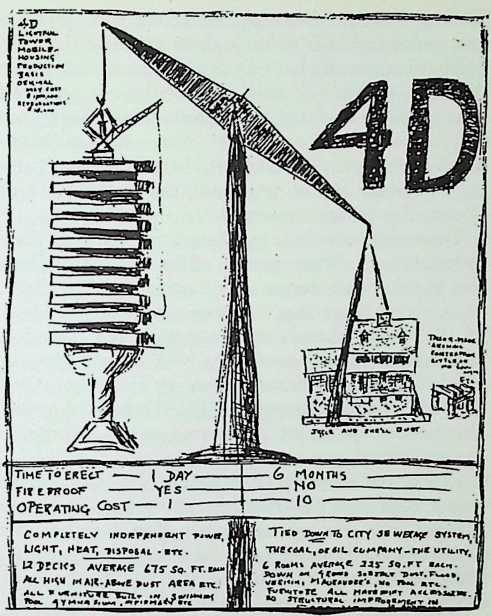 4D
LIGHTFUL
TOWER
MOBILE-
HOUSING
PRODUCTION
BASIS
ORIGINAL
MAY COST
REPRODUCTIONS
4D
TAILOR-MADE
ARCHAIC
CONTRAPTION
LITTLE OR
NO
ETC
STYLE AND SHELL DUST.
TIME TO ERECT — 1 DAY — 6 MONTHS
FIREPROOF — YES — NO
OPERATING COST — 1 — 10
COMPLETELY INDEPENDENT POWER,
LIGHT, HEAT, DISPOSAL - ETC.
12 DECKS AVERAGE 675 SQ. FT. EACH
ALL HIGH IN AIR-ABOVE DUST AREA ETC.
ALL FURNITURE BUILT IN, SWIMMING
POOL GYMNASIUM, INFIRMARY ETC
TIED DOWN TO CITY SEWERAGE SYSTEM,
THE COAL, OR OIL COMPANY - THE UTILITY,
6 ROOMS AVERAGE 225 SQ. FT EACH.
DOWN ON GROUND SUBJECT DUST, FLOOD,
VERMIN, MARAUDER'S, NO POOL ETC.
FURNITURE ALL
NO STRUCTURAL IMPROVEMENT IN